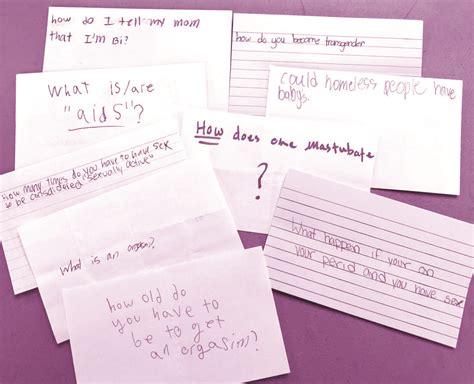 how do I tell my mom
that I'm Bi?
how do you become transgender
What is/are
"aids"?
could homeless people have
babys.
How does one mastubate
?
How many times do you have to have sex
to be considered "sexually active"
What happen if your on
your perid and you have sex
What is an orgasm?
how old do
you have to
be to get
an orgasim?